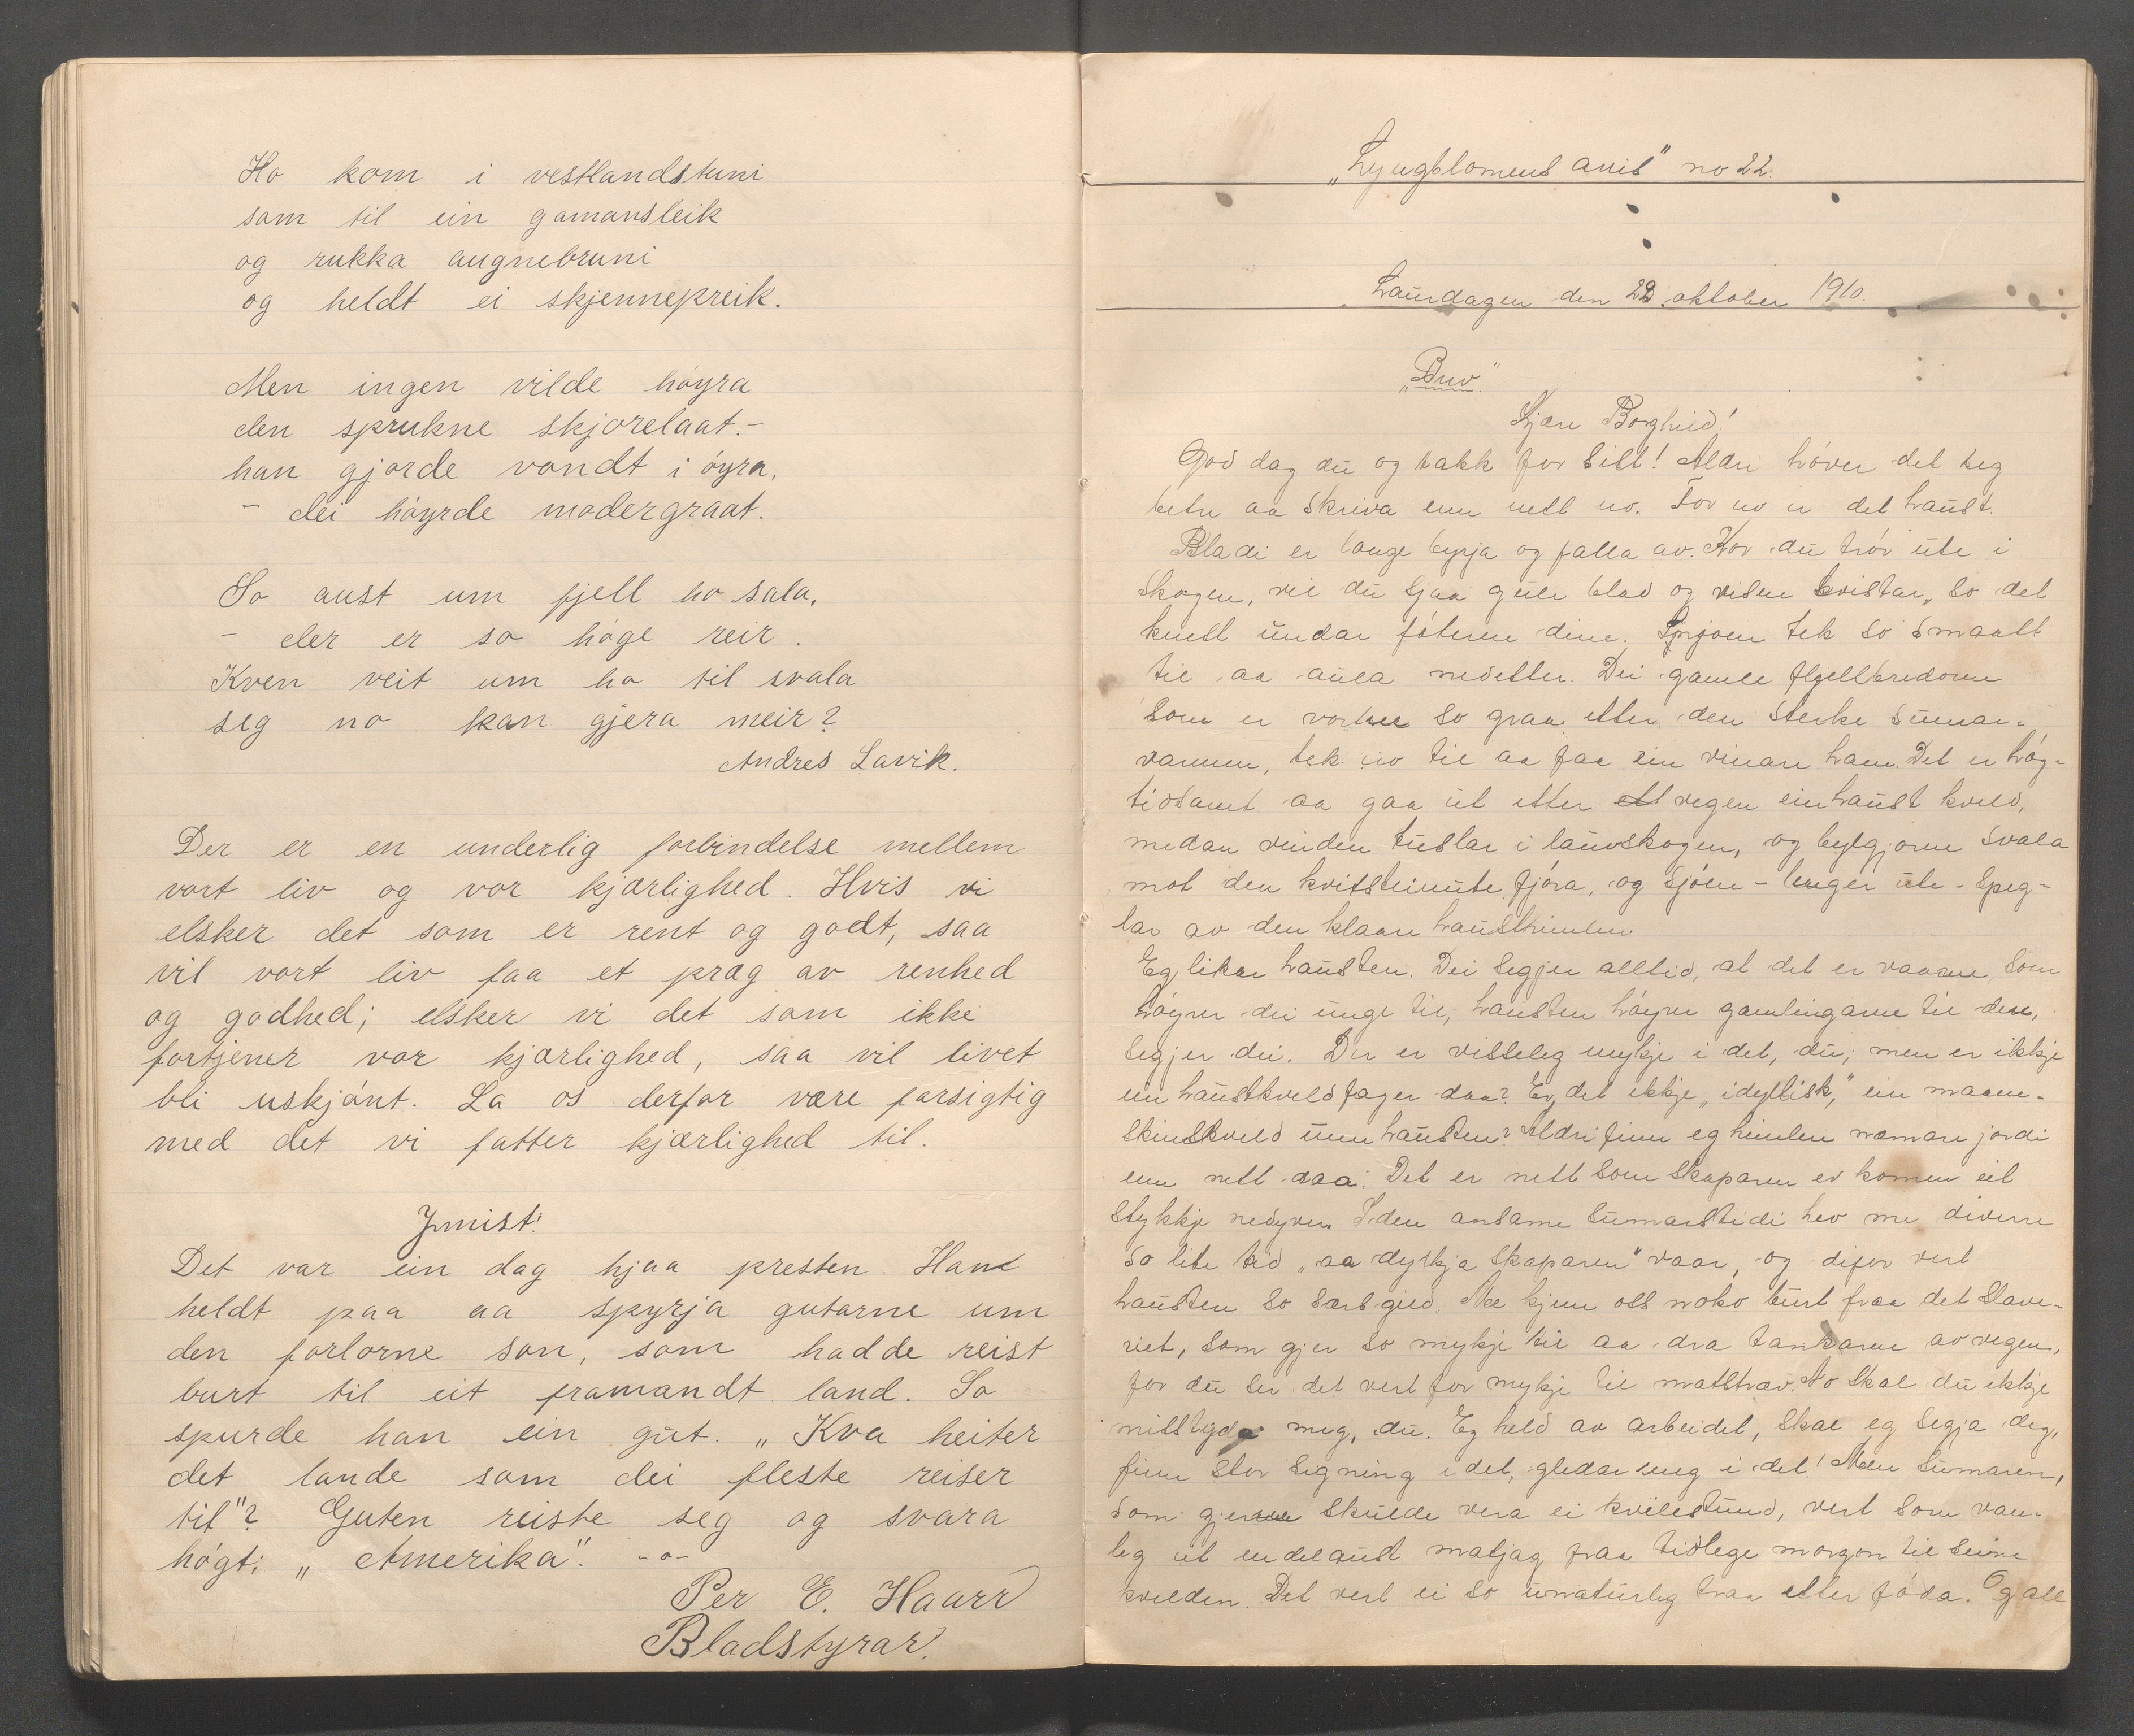 Ho kom i vestlandstuni
som til ein gamansleik
og rukka augnebruni
og heldt ei skjennepreik.
Men ingen vilde høyra
den sprukne skjorelaat.-
han gjorde vondt i øyra,
- dei høyrde modergraat.
So aust um fjell ho sala,
- der er so høge reir.
Kven veit um ho til svala
seg no kan gjera meir?
Andres Lavik.
Der er en underlig forbindelse mellem
vort liv og vor kjærlighed. Hvis vi
elsker det som er rent og godt, saa
vil vort liv faa et præg av renhed
og godhed; elsker vi det som ikke
fortjener vor kjærlighed, saa vil livet
bli uskjønt. La os derfor være forsigtig
med det vi fatter kjærlighed til.
Ymist!
Det var ein dag hjaa presten. Han
heldt paa aa spyrja gutarne um
den fortorne son, som hadde reist
burt til eit framandt land. So
spurde han ein gut. „Kva heiter
det lande som dei fleste reiser
til"? Guten reiste seg og svara
høgt: „Amerika". -o-
Per E. Haarr
Bladstyrar.
„Lyngblomens avis" no 22.
Laurdagen den 22. oktober 1910.
„Brev."
Kjære Borghild!
God dag du og takk for sist! Aldri høver det seg
betre aa skriva enn nett no. For no er det haust.
Bladi er longe byrja og falla av. Kor du trør ute i
skogen, vil du sjaa gule blad og visne kvistar, so det
knest undar føterne dine. Snjoen tek so smaatt
til aa aula nedetter. Dei gamle fjellbredorne
som er vortne so graa etter den sterke sumar-
varmen, tek no til aa faa ein vinare ham. Det er høg-
tidsamt aa gaa ut etter vegen ein haust kveld,
medan vinden tuslar i lauvskogen, og bylgjorne svala
mot den kvitsteinute fjøra, og sjøen - lenger ute - speg-
lar av den klaare hausthimlen.
Eg likar hausten. Dei segjer alltid, at det er vaaren som
høyrer dei unge til, hausten høyrer gamlingarne til dess,
segjer dei. Der er visseleg mykje i det, du; men er ikkje
ein haustkveld fager daa? Er det ikkje „idyllisk," ein maane-
skinskveld um hausten? Aldri finn eg himlen nærmare jordi
enn nett daa. Det er nett som skaparen er komen eit
stykkje nedyver. I den ansame sumarstidi hev me diverre
so lite tid „aa dyrkja skaparen" vaar, og difor vert
hausten so særs gild. Me kjem oss noko burt fraa det slave-
riet, som gjer so mykje til aa dra tankarne av vegen,
for du ser det vert for mykje til matstræv. No skal du ikkje
misstyda meg, du. Eg held av arbeidet, skal eg segja deg,
finn stor signing i det, gledar meg i det! Men sumaren,
som gjerne skulde vera ei kvilestund, vert som van-
leg eit endelaust matjag fraa tidlege morgon til seine
kvelden. Det vert ei so unaturleg traa etter føda. Og all